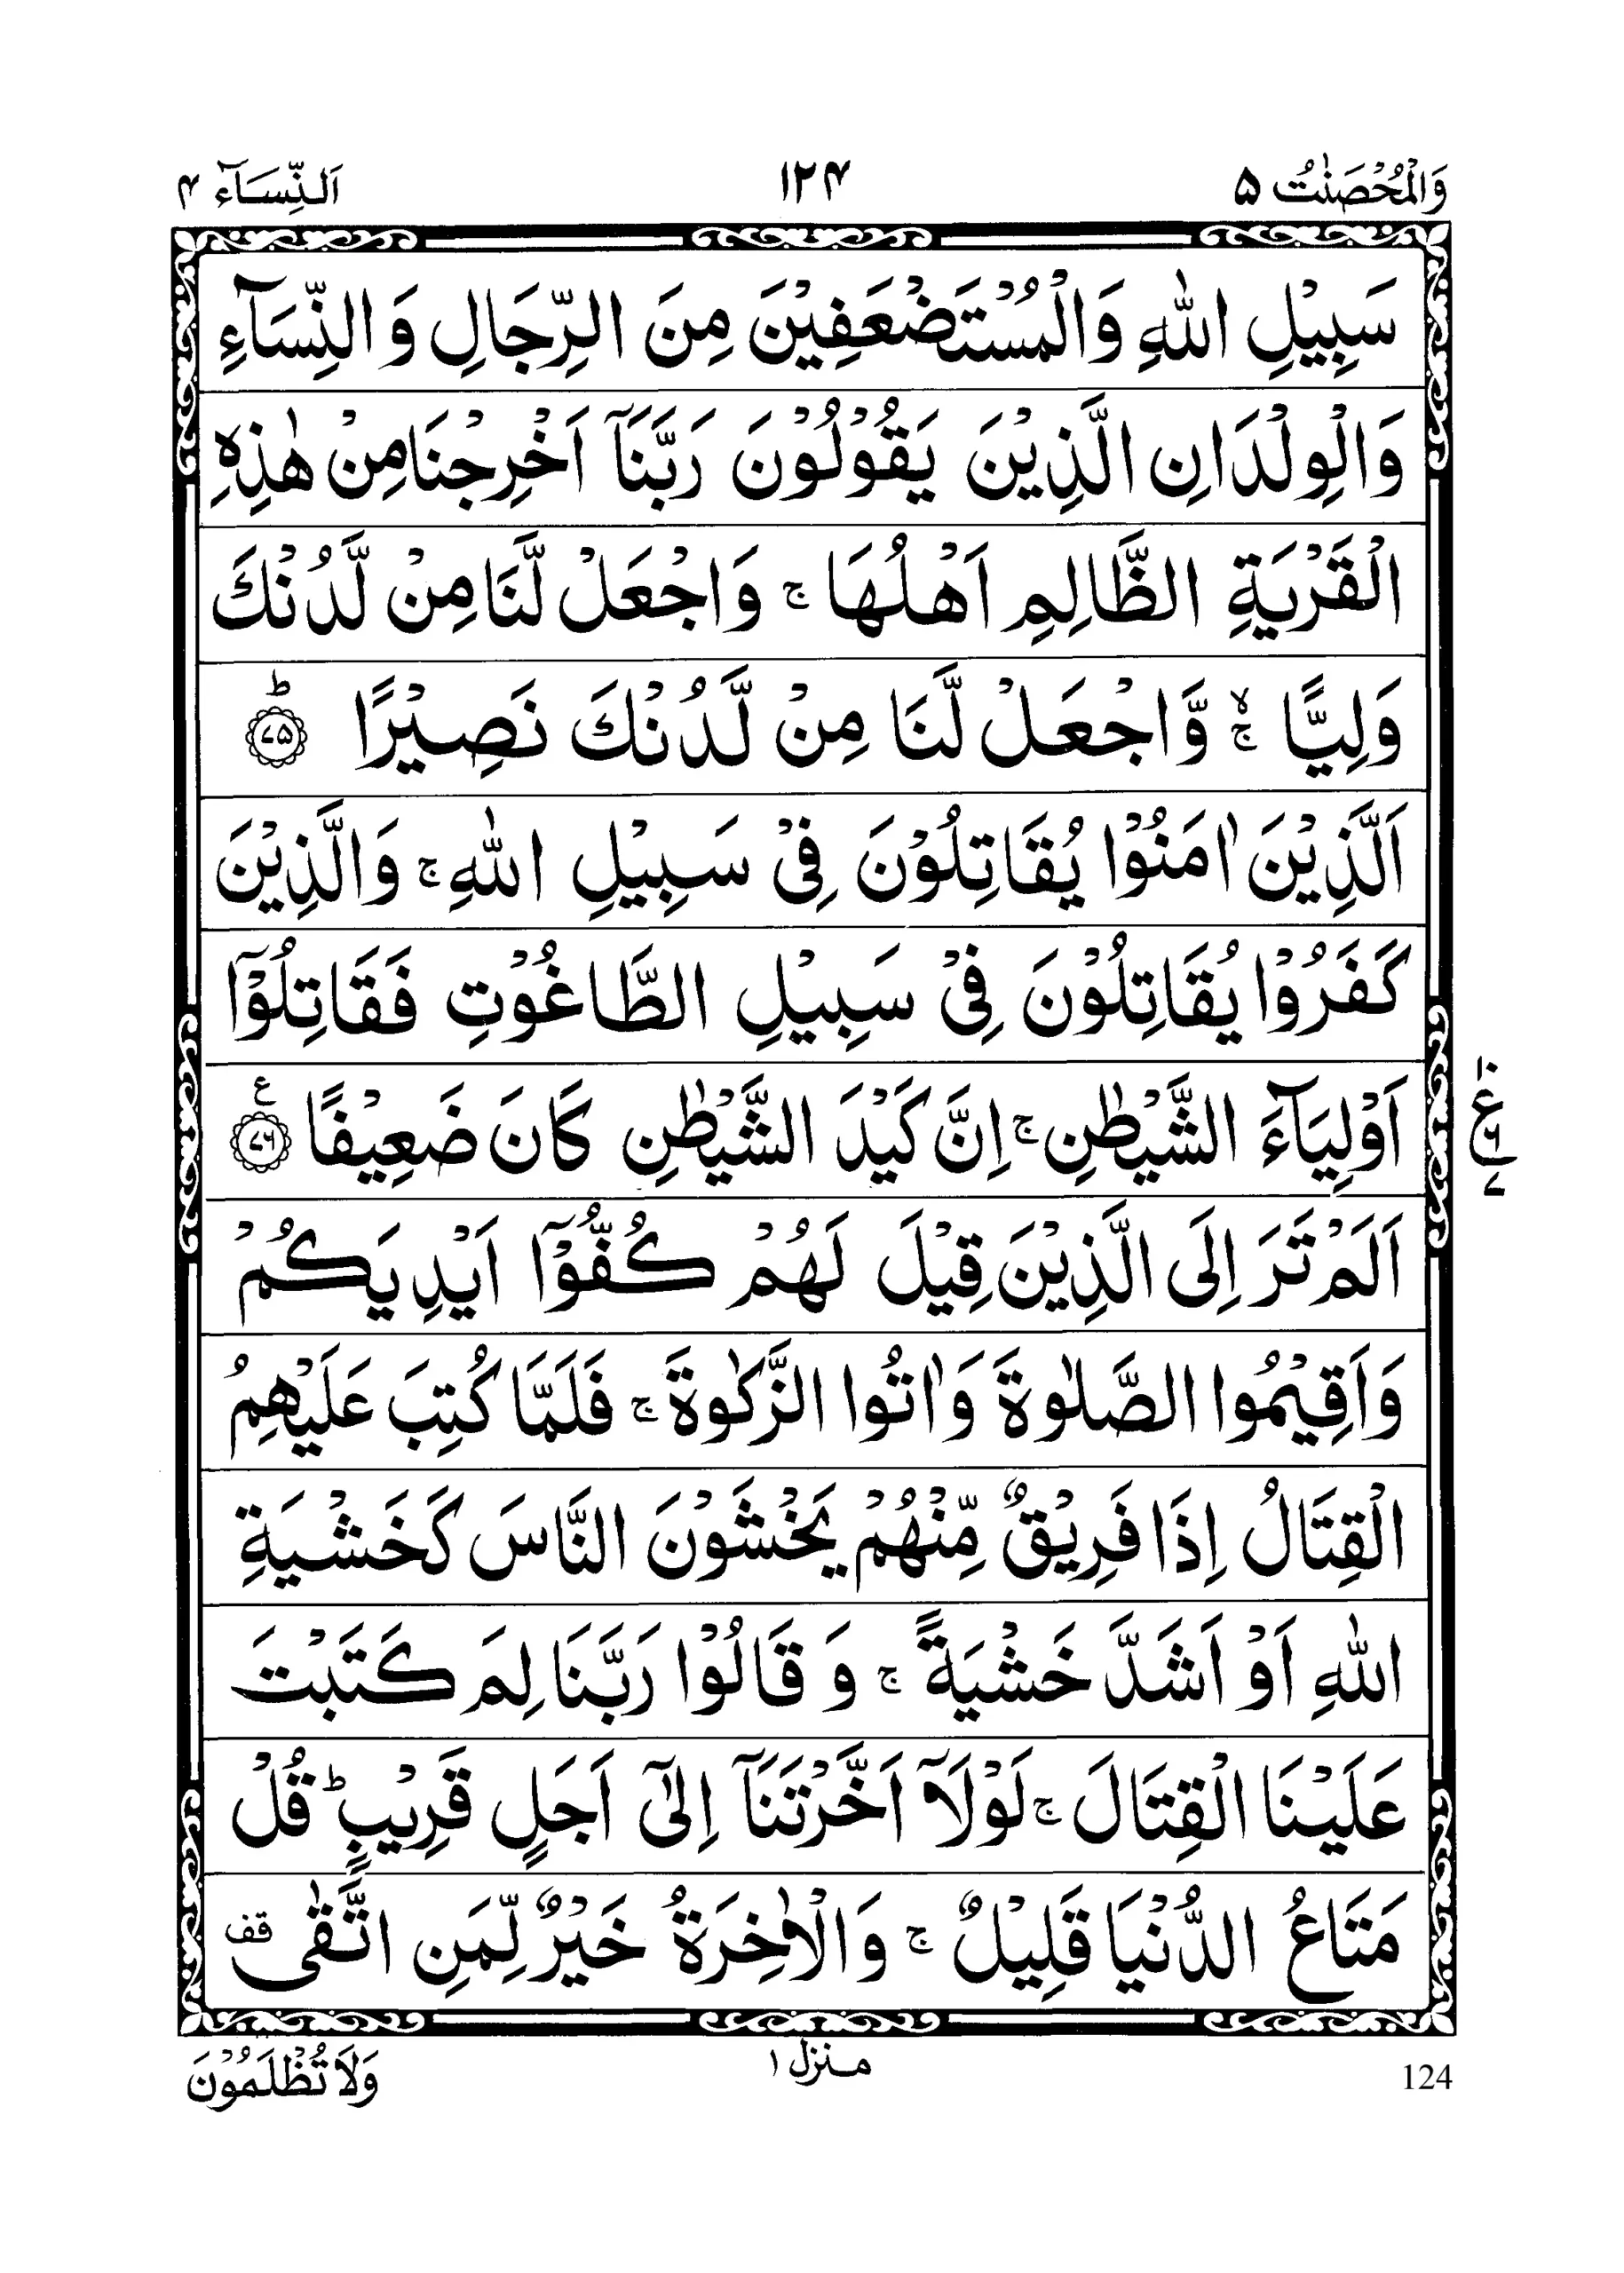 وَالْمُحْصَنٰتُ ۵
۱۲۴
اَلنِّسَآء ۴
سَبِيْلِ اللّٰهِ وَالْمُسْتَضْعَفِيْنَ مِنَ الرِّجَالِ وَالنِّسَآءِ
وَالْوِلْدَانِ الَّذِيْنَ يَقُوْلُوْنَ رَبَّنَآ اَخْرِجْنَا مِنْ هٰذِهِ
الْقَرْيَةِ الظَّالِمِ اَهْلُهَا ۚ وَاجْعَلْ لَّنَا مِنْ لَّدُنْكَ
وَلِيًّا ۙۚ وَّاجْعَلْ لَّنَا مِنْ لَّدُنْكَ نَصِيْرًا ؕ ﴿۷۵﴾
اَلَّذِيْنَ اٰمَنُوْا يُقَاتِلُوْنَ فِيْ سَبِيْلِ اللّٰهِ ۚ وَالَّذِيْنَ
كَفَرُوْا يُقَاتِلُوْنَ فِيْ سَبِيْلِ الطَّاغُوْتِ فَقَاتِلُوْٓا
اَوْلِيَآءَ الشَّيْطٰنِ ۚ اِنَّ كَيْدَ الشَّيْطٰنِ كَانَ ضَعِيْفًا ﴿۷۶﴾ ع
۱۰
ع
۶
۷
اَلَمْ تَرَ اِلَى الَّذِيْنَ قِيْلَ لَهُمْ كُفُّوْٓا اَيْدِيَكُمْ
وَاَقِيْمُوا الصَّلٰوةَ وَاٰتُوا الزَّكٰوةَ ۚ فَلَمَّا كُتِبَ عَلَيْهِمُ
الْقِتَالُ اِذَا فَرِيْقٌ مِّنْهُمْ يَخْشَوْنَ النَّاسَ كَخَشْيَةِ
اللّٰهِ اَوْ اَشَدَّ خَشْيَةً ۚ وَ قَالُوْا رَبَّنَا لِمَ كَتَبْتَ
عَلَيْنَا الْقِتَالَ ۚ لَوْلَآ اَخَّرْتَنَآ اِلٰٓى اَجَلٍ قَرِيْبٍ ؕ قُلْ
مَتَاعُ الدُّنْيَا قَلِيْلٌ ۚ وَالْاٰخِرَةُ خَيْرٌ لِّمَنِ اتَّقٰى قف
وَلَا تُظْلَمُوْنَ
منزل ۱
124